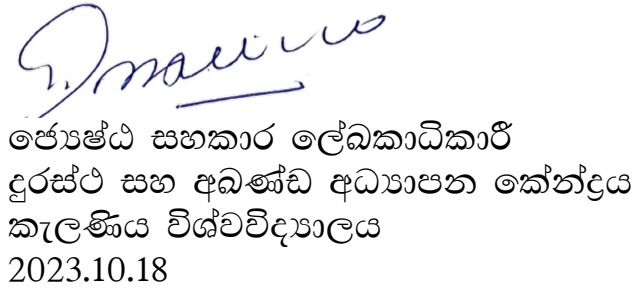 ජ්‍යෙෂ්ඨ සහකාර ලේඛකාධිකාරී
දුරස්ථ සහ අඛණ්ඩ අධ්‍යාපන කේන්ද්‍රය
කැලණිය විශ්වවිද්‍යාලය
2023.10.18